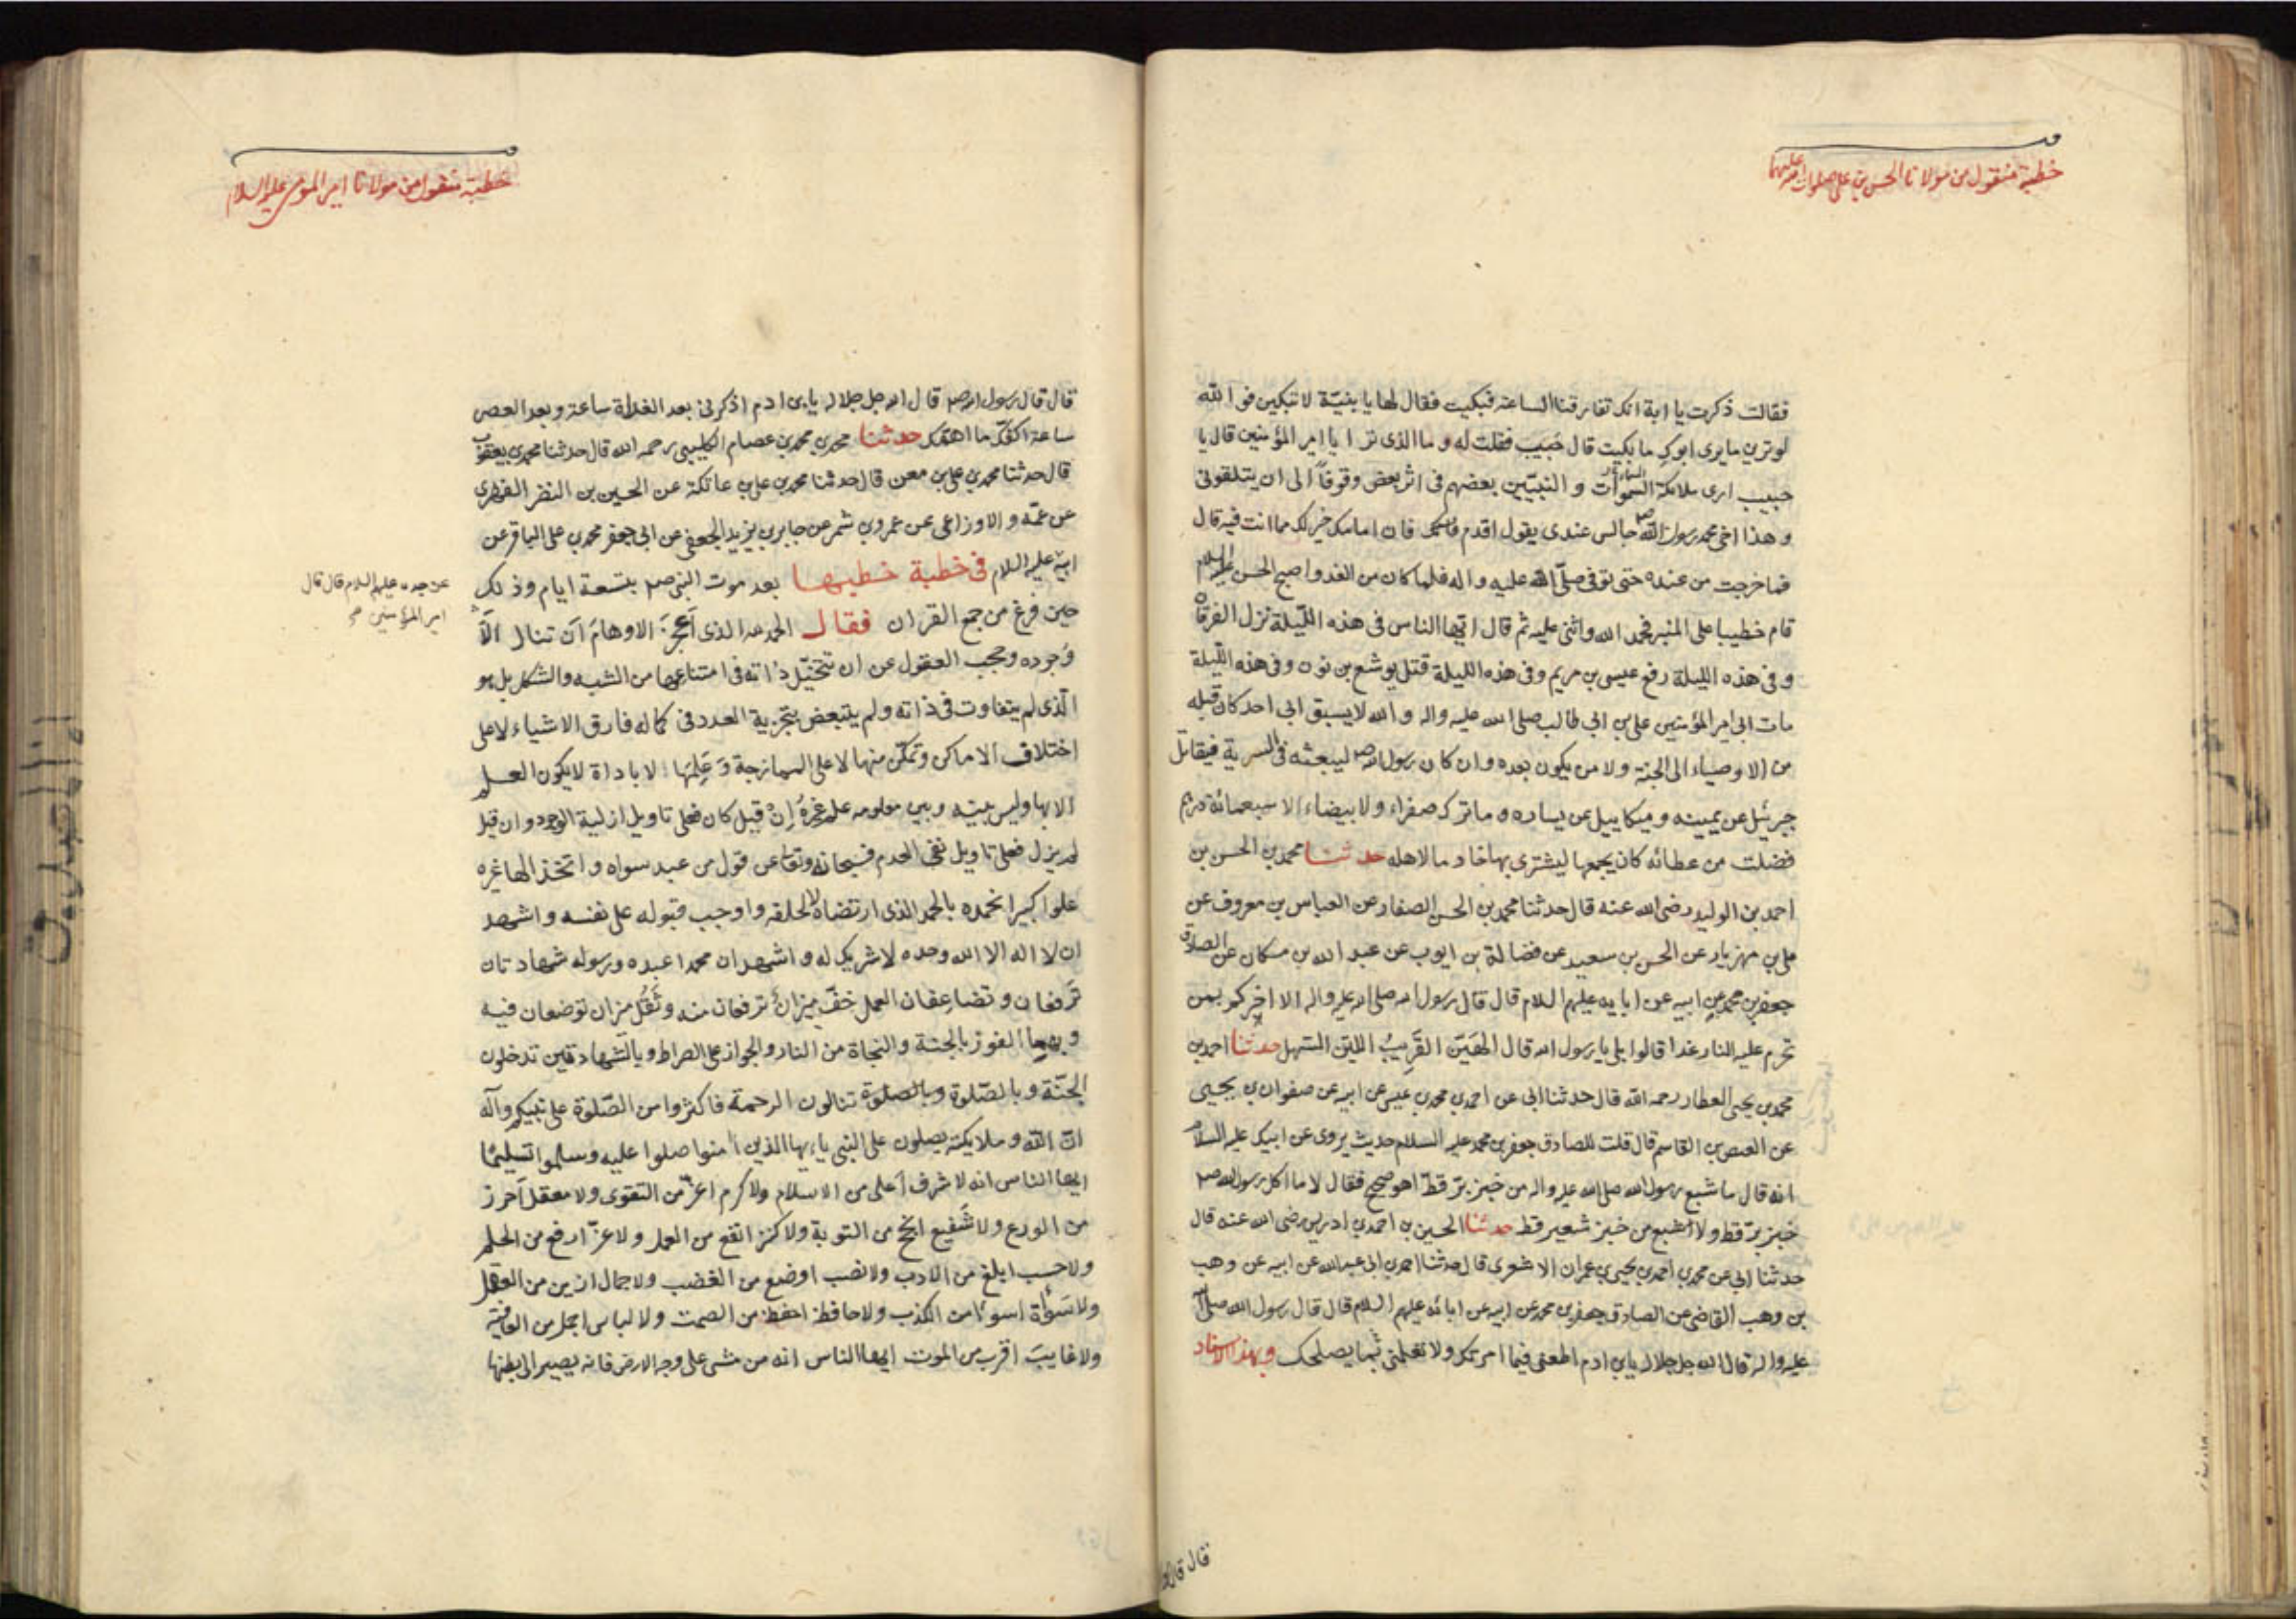 خطبة منقول من مولانا الحسن بن على صلوات الله عليهما
فقالت ذكرت يا ابة انك تفارقنا الساعة فبكيت فقال لها يا بنيّة لا تبكين فو الله
لو ترين ما يرى ابوك ما بكيت قال حَبيب فقلت له و ما الذى ترا يا امير المؤمنين قال يا
حبيب ارى ملائكة السموات و النبيّين بعضهم فى اثر بعض وقوفاً الى ان يتلقونى
و هذا اخى محمد رسول الله صم جالس عندى يقول اقدم فان امامك خير لك مما انت فيه قال
فما خرجت من عنده حتى توفى صلّى الله عليه و اله فلما كان من الغد و اصبح الحسن عليه السلام
قام خطيبا على المنبر فحمد الله و اثنى عليه ثم قال ايّها الناس فى هذه اللّيلة نزل الفرقان
و فى هذه الليلة رفع عيسى بن مريم و فى هذه الليلة قتل يوشع بن نون و فى هذه اللّيلة
مات ابى امير المؤمنين على بن ابى طالب صلى الله عليه و اله و الله لا يسبق ابى احد كان قبله
من الاوصياء الى الجنة و لا من يكون بعده و ان كان رسول الله صم ليبعثه فى السرية فيقاتل
جبرئيل عن يمينه و ميكاييل عن يساره و ما ترك صفراء و لا بيضاء الا سبعمائة درهم
فضلت من عطائه كان يجمعها ليشترى بها خادما لاهله حدثنا محمد بن الحسن بن
احمد بن الوليد رضى الله عنه قال حدثنا محمد بن الحسن الصفار عن العباس بن معروف عن
على بن مهزيار عن الحسن بن سعيد عن فضالة بن ايوب عن عبد الله بن مسكان عن الصادق
جعفر بن محمد عن ابيه عن ابايه عليهم السلام قال قال رسول الله صلى الله عليه و اله الا اخبركم بمن
تحرم عليه النار غدا قالوا بلى يا رسول الله قال الهَيّن القَرِيبُ الليّن السّهل حدثنا احمد بن
محمد بن يحيى العطار رحمه الله قال حدثنا ابى عن احمد بن محمد بن عيسى عن ابيه عن صفوان بن يحيى
عن العيص بن القاسم قال قلت للصادق جعفر بن محمد عليه السلام حديث يروى عن ابيك عليه السلام
انه قال ما شبع رسول الله صلى الله عليه و اله من خبز برّ قطّ اهو صحيح فقال لا ما اكل رسول الله صم
خبز برّ قط و لا اشبع من خبز شعير قط حدثنا الحسين بن احمد بن ادريس رضى الله عنه قال
حدثنا ابى عن محمد بن احمد بن يحيى بن عمران الاشعرى قال حدثنا احمد بن ابى عبد الله عن ابيه عن وهب
بن وهب القاضى عن الصادق جعفر بن محمد عن ابيه عن ابائه عليهم السلام قال قال رسول الله صلى الله
عليه و اله قال الله جل جلاله يا بن ادم اطعنى فيما امرتك و لا تعلمنى بما يصلحك و بهذا الاسناد
قال قال
خطبة منقول من مولانا امير المؤمنين عليه السلام
قال قال رسول الله صم قال الله جل جلاله يا بن ادم اذكرنى بعد الغداة ساعة و بعد العصر
ساعة اكفك ما اهمّك حدثنا محمد بن محمد بن عصام الكلينى رحمه الله قال حدثنا محمد بن يعقوب
قال حدثنا محمد بن على بن معن قال حدثنا محمد بن على بن عاتكة عن الحسين بن النضر الفهرى
عن عمّه و الاوزاعى عن عمرو بن شمر عن جابر بن يزيد الجعفى عن ابى جعفر محمد بن على الباقر عن
ابيه عليه السلام فى خطبة خطبها بعد موت النبى صم بتسعة ايام و ذلك
عن جده عليهم السلام قال قال
امير المؤمنين
حين فرغ من جمع القران فقال الحمد لله الذى اَعجزَ الاوهامَ اَن تنال الّا
وُجوده و حجب العقول عن ان تتخيّل ذاته فى امتناعها من الشبه و الشكل بل هو
الّذى لم يتفاوت فى ذاته و لم يتبعض بتجزية العدد فى كماله فارق الاشياء لا على
اختلاف الاماكن و تمكّن منها لا على الممازجة وَ عَلِمَها لا باداة لا يكون العلم
الا بها و ليس بينه و بين معلومه علم غيرهُ اِنْ قيل كان فعلى تاويل ازلية الوجود و ان قيل
لم يزل فعلى تاويل نفى العدم فسبحانه و تعا عن قول من عبد سواه و اتخذ الها غيره
علوا كبيرا نحمده بالحمد الذى ارتضاه لخلقه و اوجب قبوله على نفسه و اشهد
ان لا اله الا الله وحده لا شريك له و اشهد ان محمدا عبده و رسوله شهادتان
تَرفعان و تضاعِفان العمل خفّ ميزانٌ ترفعان منه و ثَقُل ميزان توضعان فيه
و بهما الفوز بالجنة و النجاة من النار و الجواز على الصراط و بالشّهادتين تدخلون
الجنّة و بالصّلوة و بالصلوة تنالون الرحمة فاكثروا من الصّلوة على نبيكم و آله
انّ الله و ملايكته يصلون على النبى يا يها الذين آمنوا صلوا عليه و سلموا تسليمًا
ايها الناس انه لا شرف اعلى من الاسلام و لا كرم اعزّ من التقوى و لا معقل اَحرز
من الورع و لا شَفيع انجح من التوبة و لا كنز انفع من العمل و لا عزّ ارفع من الحلم
و لا حسب ابلغ من الادب و لا نصب اوضع من الغضب و لا جمال ازين من العقل
و لا سَوْأة اسوءا من الكذب و لا حافظ احفظ من الصمت و لا لباس اجمل من العافية
و لا غايبَ اقرب من الموت ايها الناس انه من مشى على وجه الارض فانه يصير الى بطنها